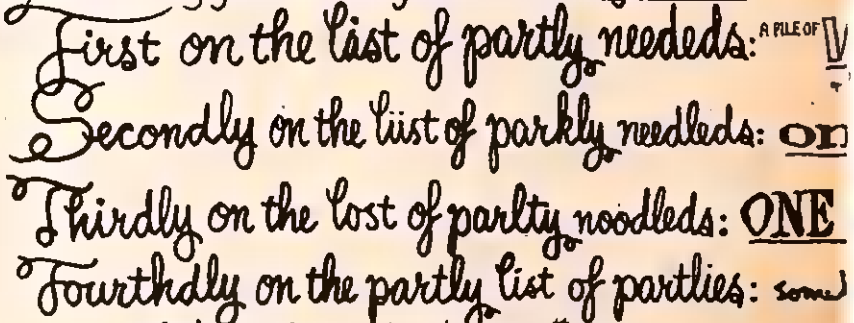 First on the lást of partly neededs: A PILE OF
Secondly on the liist of parkly needleds: on
Thirdly on the lost of parlty noodleds: ONE
Fourthdly on the partly list of partlies: some